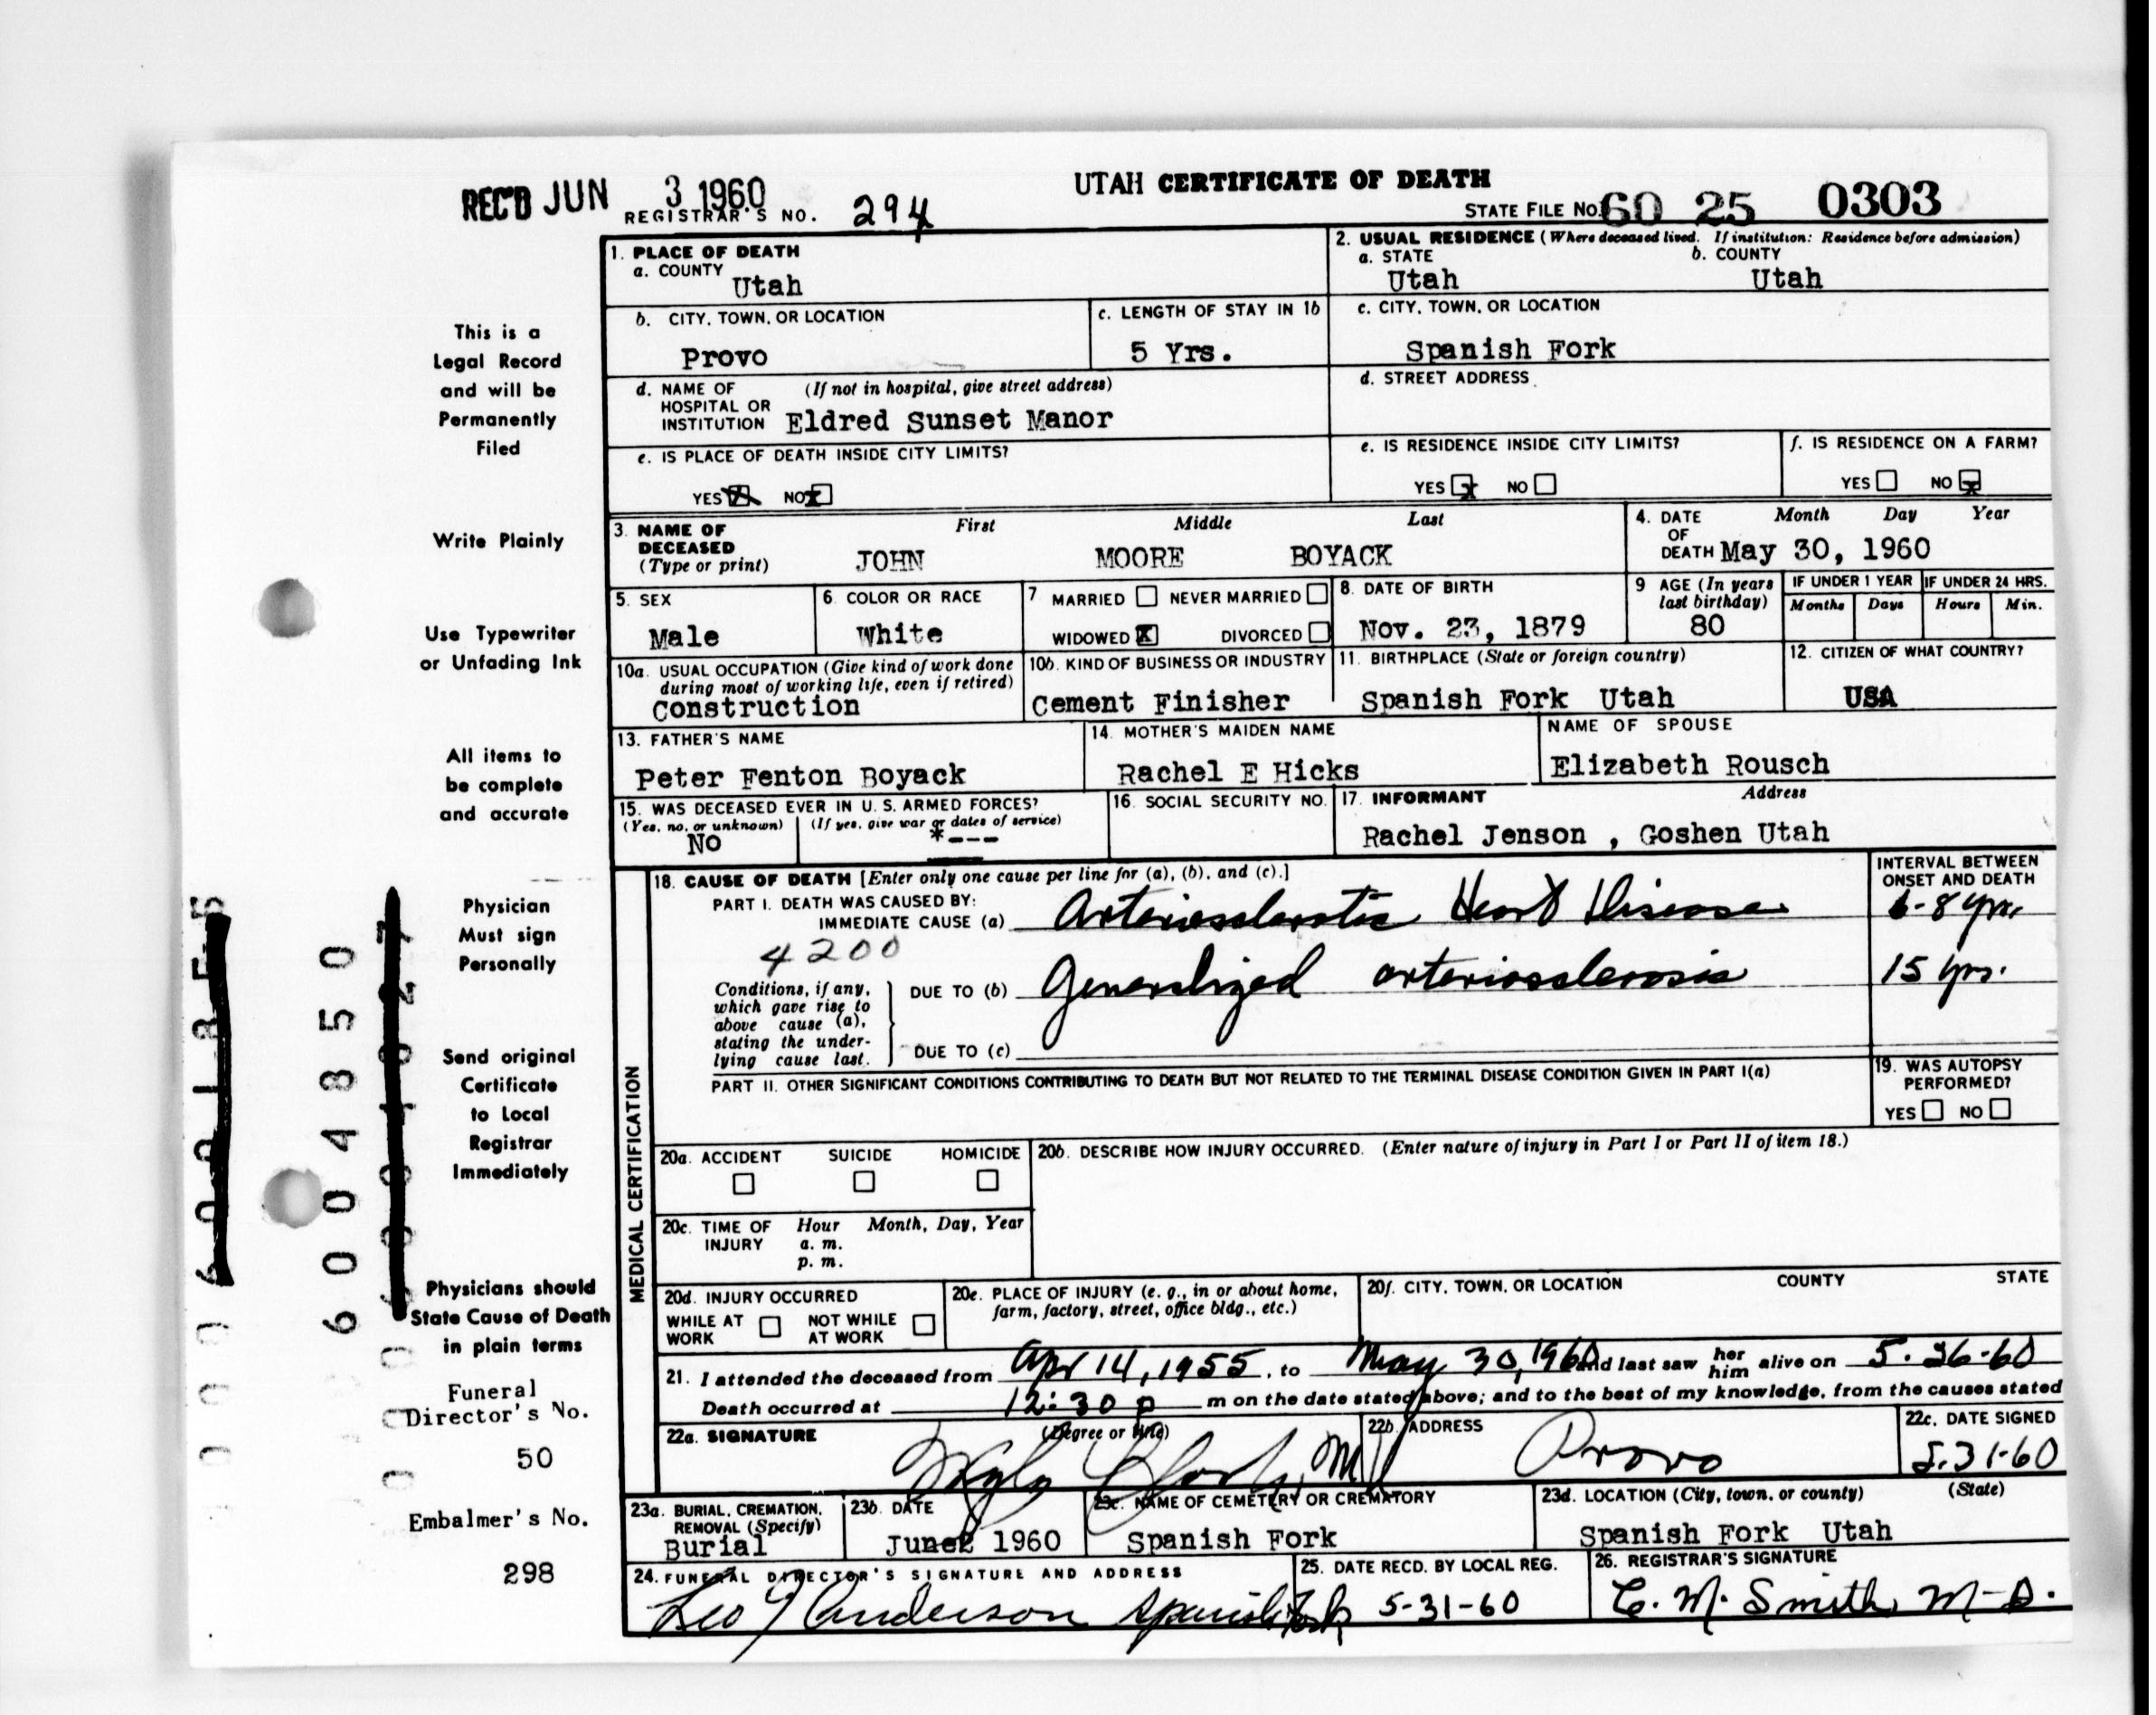 REC'D JUN 3 1960
UTAH CERTIFICATE OF DEATH
REGISTRAR'S NO. 294
STATE FILE NO. 60 25 0303
1. PLACE OF DEATH
a. COUNTY
Utah
2. USUAL RESIDENCE (Where deceased lived. If institution: Residence before admission)
a. STATE b. COUNTY
Utah Utah
b. CITY, TOWN, OR LOCATION
Provo
c. LENGTH OF STAY IN 1b
5 Yrs.
c. CITY, TOWN, OR LOCATION
Spanish Fork
d. NAME OF (If not in hospital, give street address)
HOSPITAL OR
INSTITUTION Eldred Sunset Manor
d. STREET ADDRESS
e. IS PLACE OF DEATH INSIDE CITY LIMITS?
YES NO
e. IS RESIDENCE INSIDE CITY LIMITS?
YES x NO
f. IS RESIDENCE ON A FARM?
YES NO x
3. NAME OF First Middle Last
DECEASED
(Type or print) JOHN MOORE BOYACK
4. DATE Month Day Year
OF
DEATH May 30, 1960
5. SEX
Male
6. COLOR OR RACE
White
7 MARRIED NEVER MARRIED
WIDOWED X DIVORCED
8. DATE OF BIRTH
Nov. 23, 1879
9 AGE (In years
last birthday)
80
IF UNDER 1 YEAR IF UNDER 24 HRS.
Months Days Hours Min.
10a. USUAL OCCUPATION (Give kind of work done
during most of working life, even if retired)
Construction
10b. KIND OF BUSINESS OR INDUSTRY
Cement Finisher
11. BIRTHPLACE (State or foreign country)
Spanish Fork Utah
12. CITIZEN OF WHAT COUNTRY?
USA
13. FATHER'S NAME
Peter Fenton Boyack
14. MOTHER'S MAIDEN NAME
Rachel E Hicks
NAME OF SPOUSE
Elizabeth Rousch
15. WAS DECEASED EVER IN U. S. ARMED FORCES?
(Yes, no, or unknown) (If yes, give war or dates of service)
No *---
16. SOCIAL SECURITY NO.
17. INFORMANT Address
Rachel Jenson , Goshen Utah
MEDICAL CERTIFICATION
18. CAUSE OF DEATH [Enter only one cause per line for (a), (b), and (c).]
INTERVAL BETWEEN
ONSET AND DEATH
PART I. DEATH WAS CAUSED BY:
IMMEDIATE CAUSE (a) Arteriosclerotic Heart Disease 6-8 yrs.
4200
Conditions, if any,
which gave rise to
above cause (a),
stating the under-
lying cause last.
DUE TO (b) Generalized arteriosclerosis 15 yrs.
DUE TO (c)
PART II. OTHER SIGNIFICANT CONDITIONS CONTRIBUTING TO DEATH BUT NOT RELATED TO THE TERMINAL DISEASE CONDITION GIVEN IN PART I(a)
19. WAS AUTOPSY
PERFORMED?
YES NO
20a. ACCIDENT SUICIDE HOMICIDE
20b. DESCRIBE HOW INJURY OCCURRED. (Enter nature of injury in Part I or Part II of item 18.)
20c. TIME OF Hour Month, Day, Year
INJURY a. m.
p. m.
20d. INJURY OCCURRED
WHILE AT NOT WHILE
WORK AT WORK
20e. PLACE OF INJURY (e. g., in or about home,
farm, factory, street, office bldg., etc.)
20f. CITY, TOWN, OR LOCATION COUNTY STATE
21. I attended the deceased from Apr 14, 1955, to May 30, 1960 and last saw her him alive on 5-26-60
Death occurred at 12:30 p m on the date stated above; and to the best of my knowledge, from the causes stated
22a. SIGNATURE (Degree or title)
M D
22b. ADDRESS
Provo
22c. DATE SIGNED
5.31-60
23a. BURIAL, CREMATION,
REMOVAL (Specify)
Burial
23b. DATE
June 2 1960
23c. NAME OF CEMETERY OR CREMATORY
Spanish Fork
23d. LOCATION (City, town, or county) (State)
Spanish Fork Utah
24. FUNERAL DIRECTOR'S SIGNATURE AND ADDRESS
Leo J Anderson Spanish Fork
25. DATE RECD. BY LOCAL REG.
5-31-60
26. REGISTRAR'S SIGNATURE
C. M. Smith, M-D.
This is a
Legal Record
and will be
Permanently
Filed
Write Plainly
Use Typewriter
or Unfading Ink
All items to
be complete
and accurate
Physician
Must sign
Personally
Send original
Certificate
to Local
Registrar
Immediately
Physicians should
State Cause of Death
in plain terms
Funeral
Director's No.
50
Embalmer's No.
298
6004850